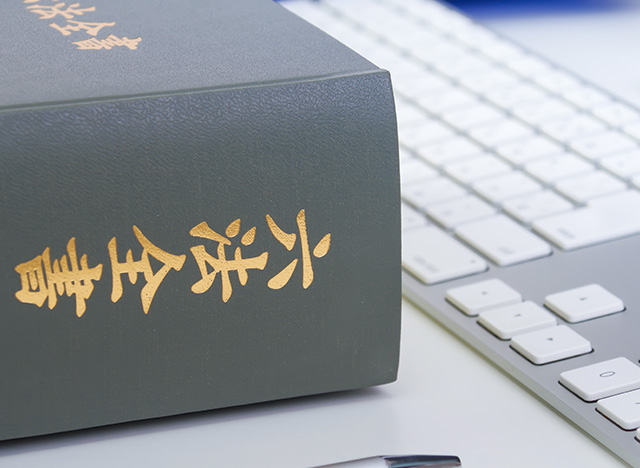 法全書
六法全書